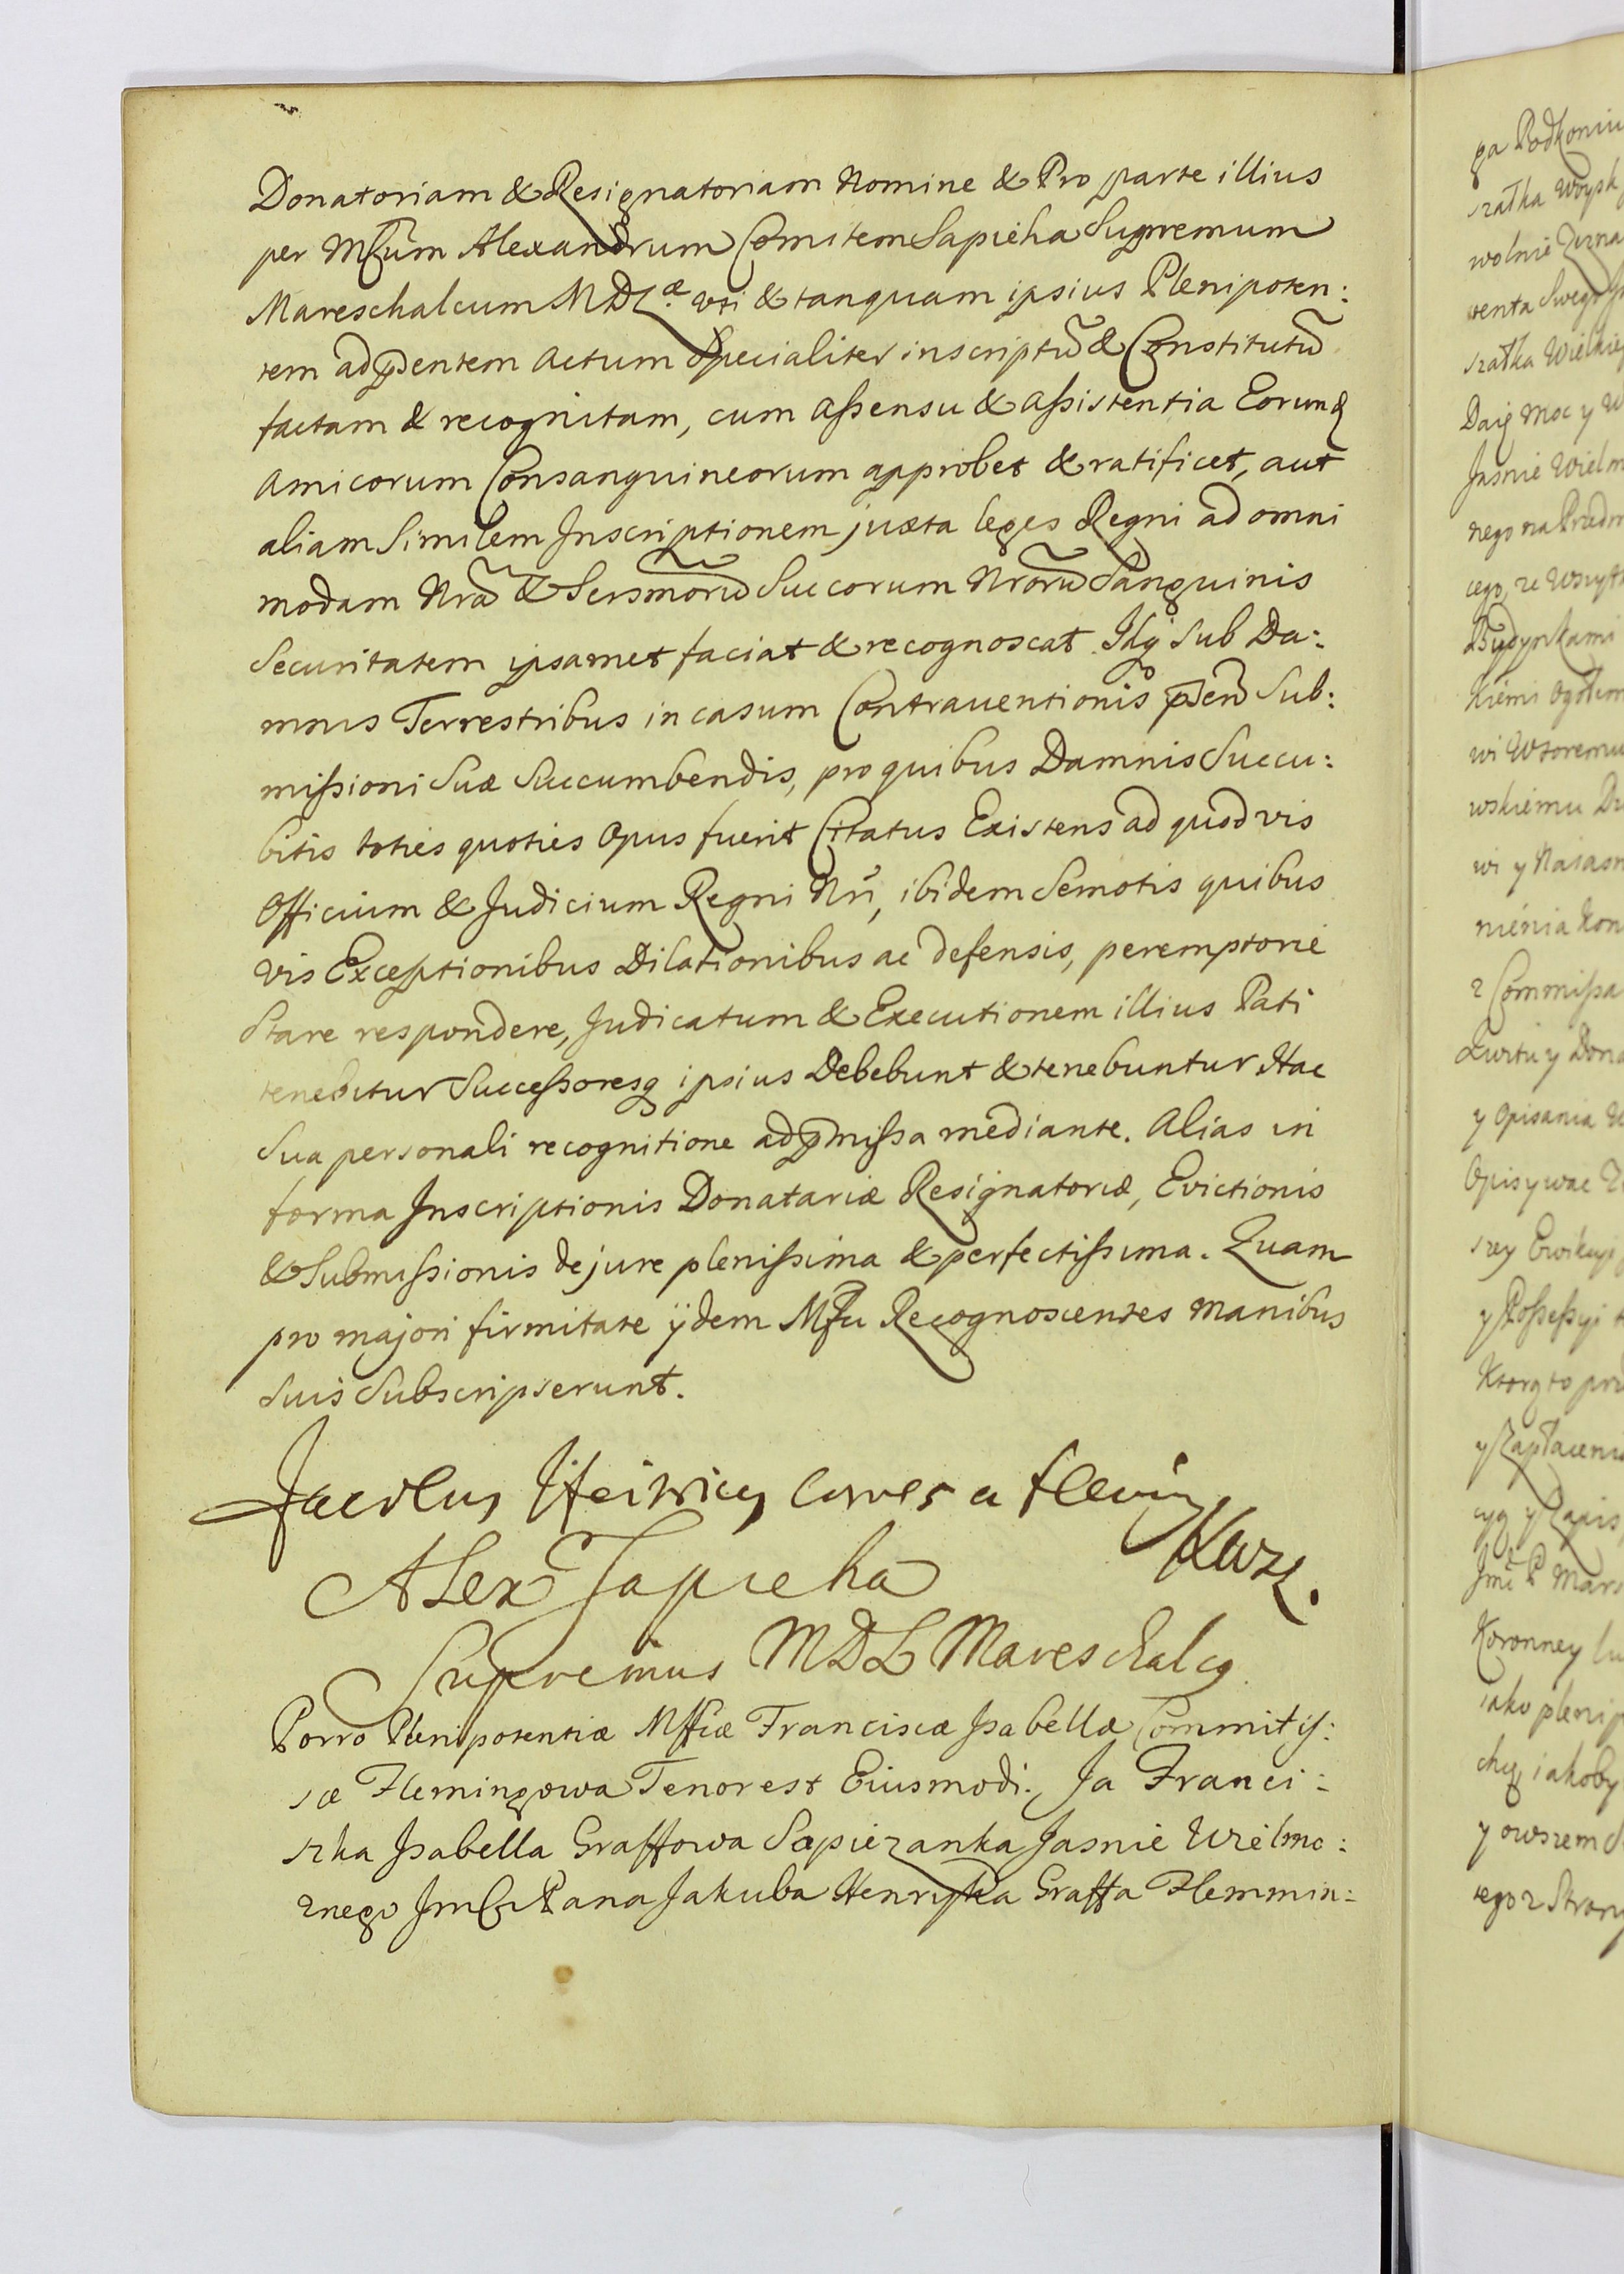 Donatoriam & Resignatoriam Nomine & Pro parte illius
per Mfcum Alexandrum Comitem Sapieha Supremum
Mareschalcum M D L.æ uti & tanquam ipsius Plenipoten:
tem ad pñdentem actum Specialiter inscriptũ & Constitutũ
factam & recognitam, cum assensu & assistentia Eorundẽ
Amicorum Consanguineorum approbet & ratificet, aut
aliam Similem Inscriptionem juxta leges Regni ad omni
modam Nrã & Sersmorũ Succorum Nrorũ Sanguinis
Securitatem ipsamet faciat & recognoscat. Idq Sub Da:
mnis Terrestribus in casum Contrauentionis pñti Sub:
missioni Suæ Succumbendis, pro quibus Damnis Succu:
bitis toties quoties Opus fuerit Citatus Existens ad quodvis
Officium & Judicium Regni Nri, ibidem Semotis quibus
vis Exceptionibus Dilationibus ac defensis, peremptorie
Stare respondere, Judicatum & Executionem illius Pati
tenebitur Successoresq ipsius Debebunt & tenebuntur Hac
Sua personali recognitione ad pmissa mediante. Alias in
forma Inscriptionis Donatariæ Resignatoriæ, Evictionis
& Submissionis de jure plenissima & perfectissima. Quam
pro majori firmitate ijdem Mfci Recognoscentes manibus
suis Subscripserunt.
Jacobus Heinricus Comes a Fleming
Alex Sapieha
Supremus MDL Mareschalcq
Porro Plenipotentiæ Mfficæ Franciscæ Isabellæ Commitis:
sæ Flemingowa Tenor est Eiusmodi. Ja Franci:
szka Isabella Graffowa Sapiezanka Jasnie Wielmo:
znego Jmci Pana Jakuba Henryka Graffa Flemmin:
ga Podkoniu
szałka Woysk
wolnie Zezna
tenta Swego
szałka Wielkie
Daię Moc y W
Jasnie Wielm
nego na Przedm
cego, ze Wszyt
Budynkami
wi Wtoremu
wskiemu
wi y Naiasn
nienia Kon
z Commissa
Kwitu y Dona
y Opisania
Opisywac
szey Ewikcyi
y Possessyi
y Zapłaceni
cyą y Zapis
Koronney
iako plenip
chę iakoby
y owszem
tego z Strony